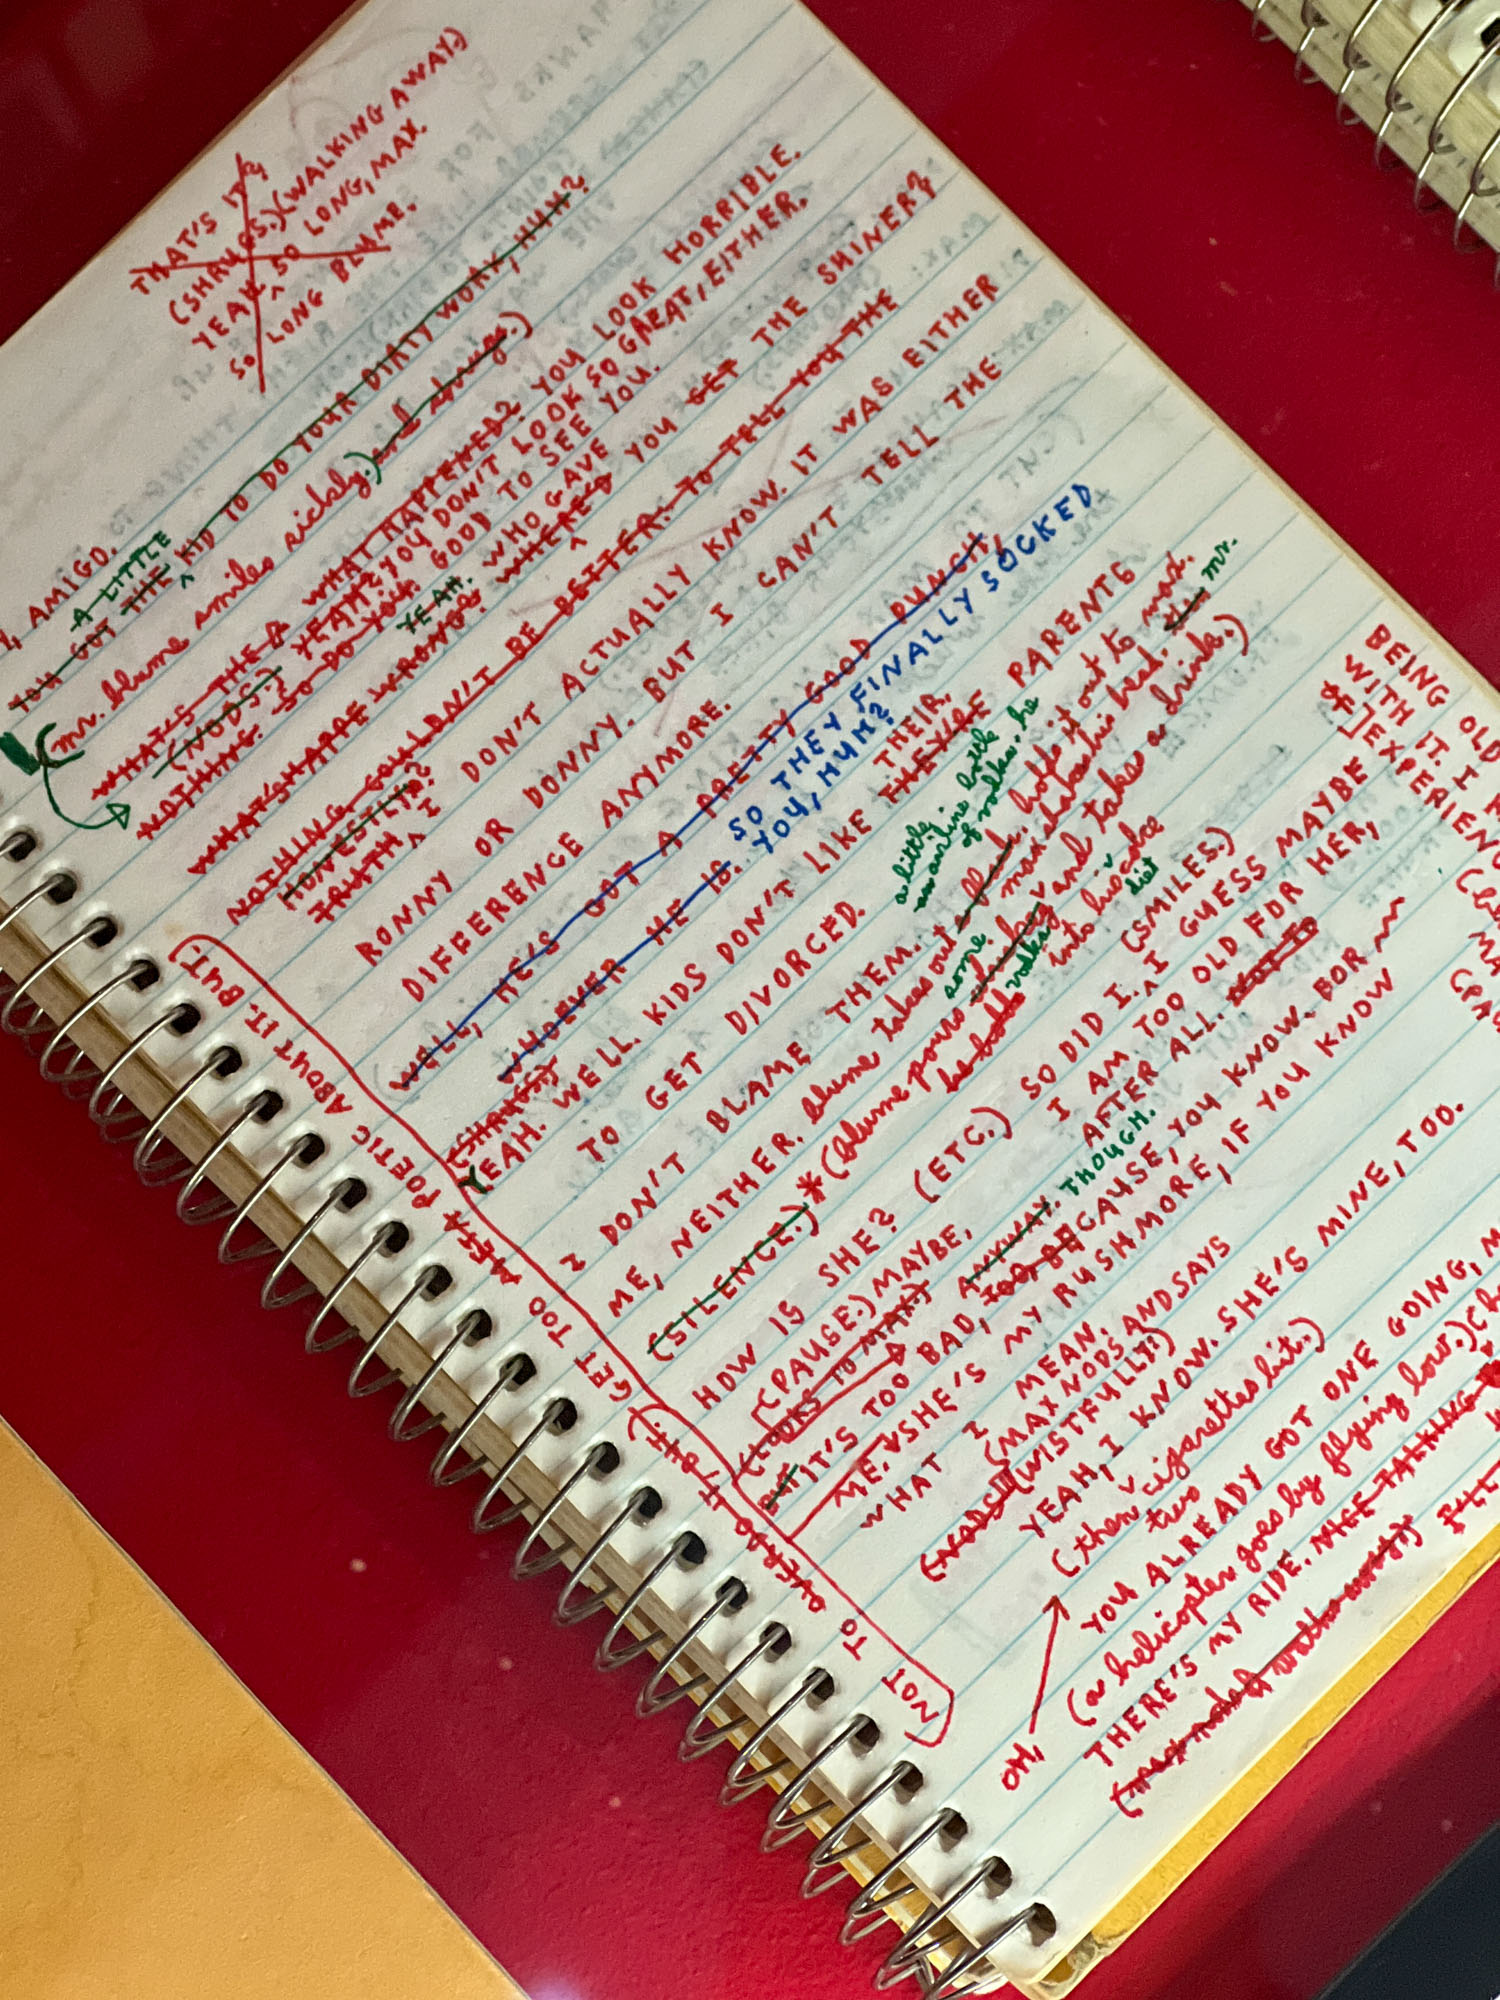 THAT'S IT?
(SHRUGS.) (WALKING AWAY.)
YEAH. SO LONG, MAX.
SO LONG BLUME.
AMIGO.
A LITTLE
YOU GOT THE KID TO DO YOUR DIRTY WORK, HUH?
mr. blume smiles sickly.) and shrugs.)
WHAT HAPPENED? YOU LOOK HORRIBLE.
WHAT'S THE
(NODS.) YEAH? YOU DON'T LOOK SO GREAT, EITHER.
NOTHING. SO DO YOU. GOOD TO SEE YOU.
YEAH. WHO GAVE
WHAT SHAPE WRONG? WHERE'D YOU GET THE SHINER?
NOTHING COULDN'T BE BETTER. TO TELL YOU THE
HONESTLY?
TRUTH I DON'T ACTUALLY KNOW. IT WAS EITHER
RONNY OR DONNY. BUT I CAN'T TELL THE
DIFFERENCE ANYMORE.
(WELL, HE'S GOT A PRETTY GOOD PUNCH,
SO THEY FINALLY SOCKED
WHOEVER HE IS. YOU, HUH?
(SHRUGS)
YEAH. WELL. KIDS DON'T LIKE THEY'RE PARENTS
THEIR
TO GET DIVORCED.
I DON'T BLAME THEM.
a little
an airline bottle
of vodka. he
ME, NEITHER. blume takes out a flask. holds it out to max.
some max shakes his head. mr.
(SILENCE.) * (blume pours whiskey and takes a drink.)
he took vodka into his coke
diet
HOW IS SHE? (ETC.) SO DID I. (SMILES.)
(PAUSE.) MAYBE. I GUESS MAYBE
(LOOKS TO MAX.) ANYWAY. I AM TOO OLD FOR HER,
AFTER ALL.
THOUGH.
IT'S TOO BAD, TOO, BECAUSE, YOU KNOW. FOR
ME. SHE'S MY RUSHMORE, IF YOU KNOW
WHAT I MEAN.
(MAX NODS AND SAYS
(NODS.) (WISTFULLY:)
YEAH, I KNOW. SHE'S MINE, TOO.
(then two cigarettes lit.)
OH, YOU ALREADY GOT ONE GOING,
(a helicopter goes by flying low.)
THERE'S MY RIDE. NICE TALKING
BEING OLD
WITH IT. I
EXPERIEN
NOT TO OVERDO IT, BUT.) GET TOO META POETIC ABOUT IT. BUT.)